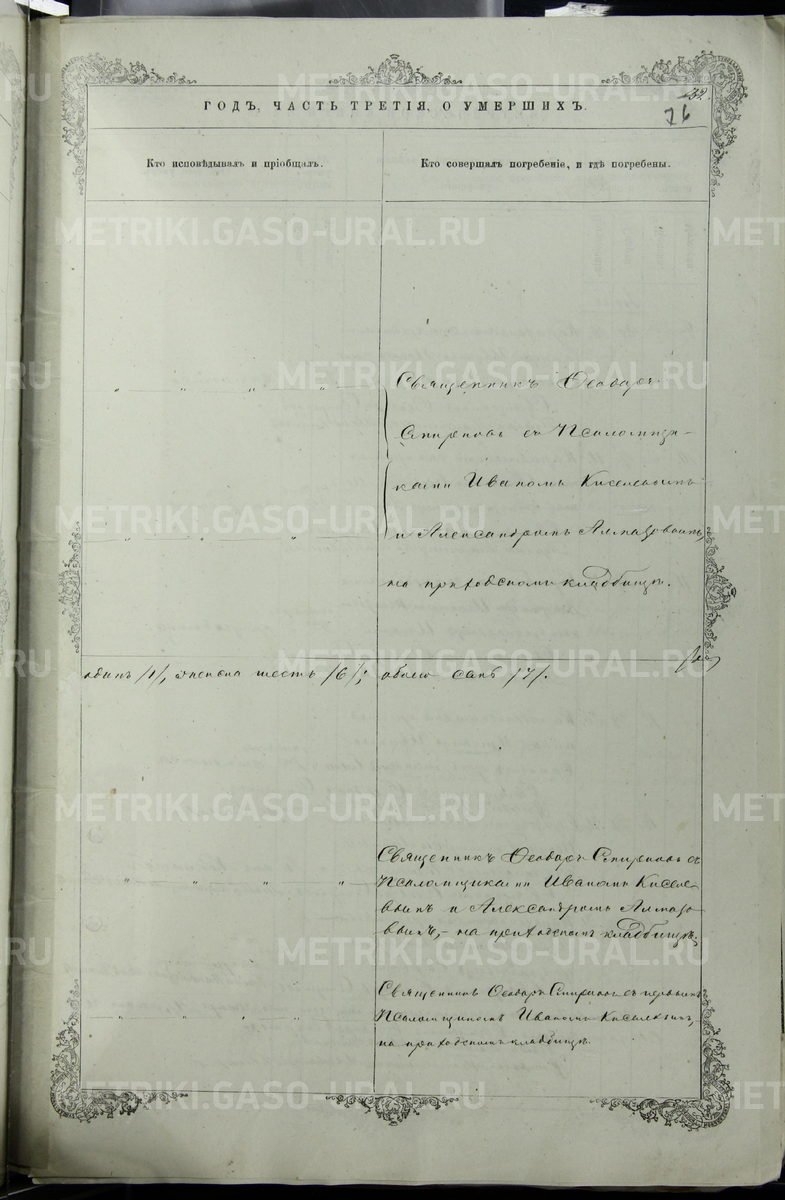 ГОДЪ, ЧАСТЬ ТРЕТІЯ, О УМЕРШИХЪ.
76
Кто исповѣдывалъ и пріобщалъ.
Кто совершалъ погребеніе, и гдѣ погребены.
METRIKI.GASO-URAL.RU
Священникъ Ѳеодоръ
Спиринъ съ Псаломщи-
ками Иваномъ Киселевымъ
и Александромъ Алмазовымъ,
на приходскомъ кладбищѣ.
одинъ /1/, женска шесть /6/; обоего семь /7/.
Священникъ Ѳеодоръ съ
Псаломщиками Иваномъ Кисел-
вымъ и Александромъ Алмазо-
вымъ, - на приходскомъ кладбищѣ.
Священникъ Ѳеодоръ съ первымъ
Псаломщикомъ Иваномъ Киселевымъ,
на приходскомъ кладбищѣ.